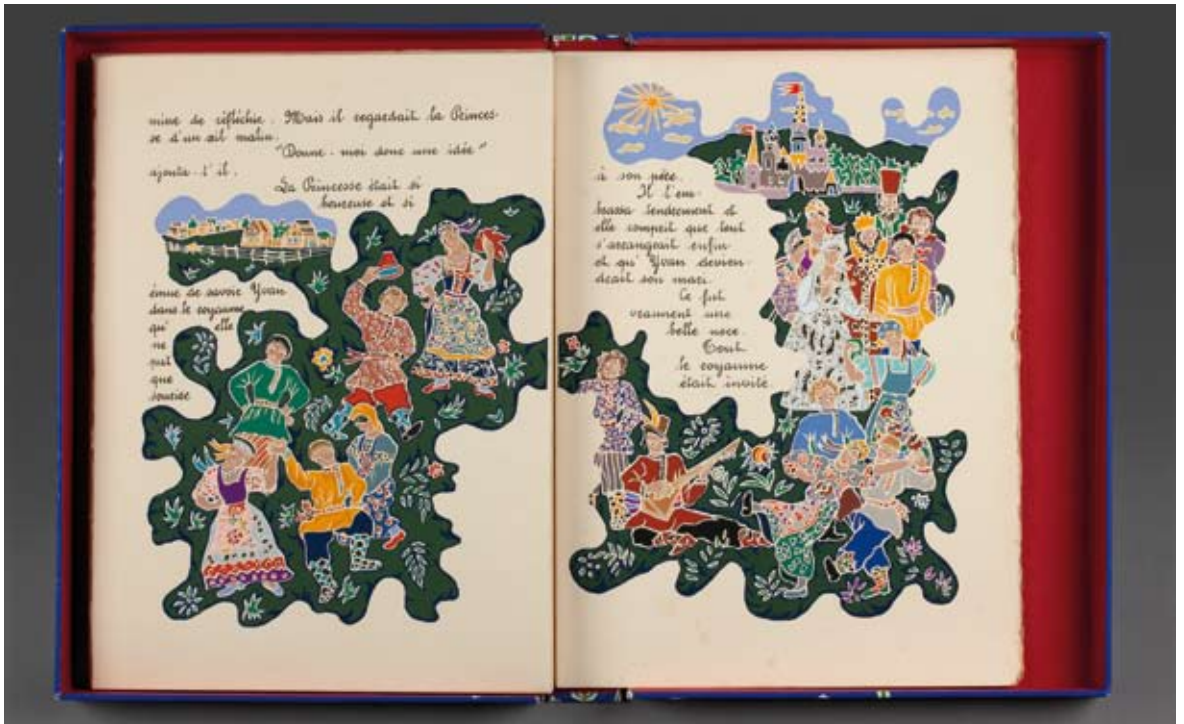 mine de réfléchie. Mais il regardait la Princes-
se d'un œil malin.
"Donne-moi donc une idée"
ajouta-t'il.
La Princesse était si
heureuse et si
émue de savoir Yvan
dans le royaume
qu'elle
ne
put
que
sourire
à son père.
Il l'em-
brassa tendrement et
elle comprit que tout
s'arrangeait enfin
et qu'Yvan devien-
drait son mari.
Ce fut
vraiment une
belle noce.
Tout
le royaume
était invité.